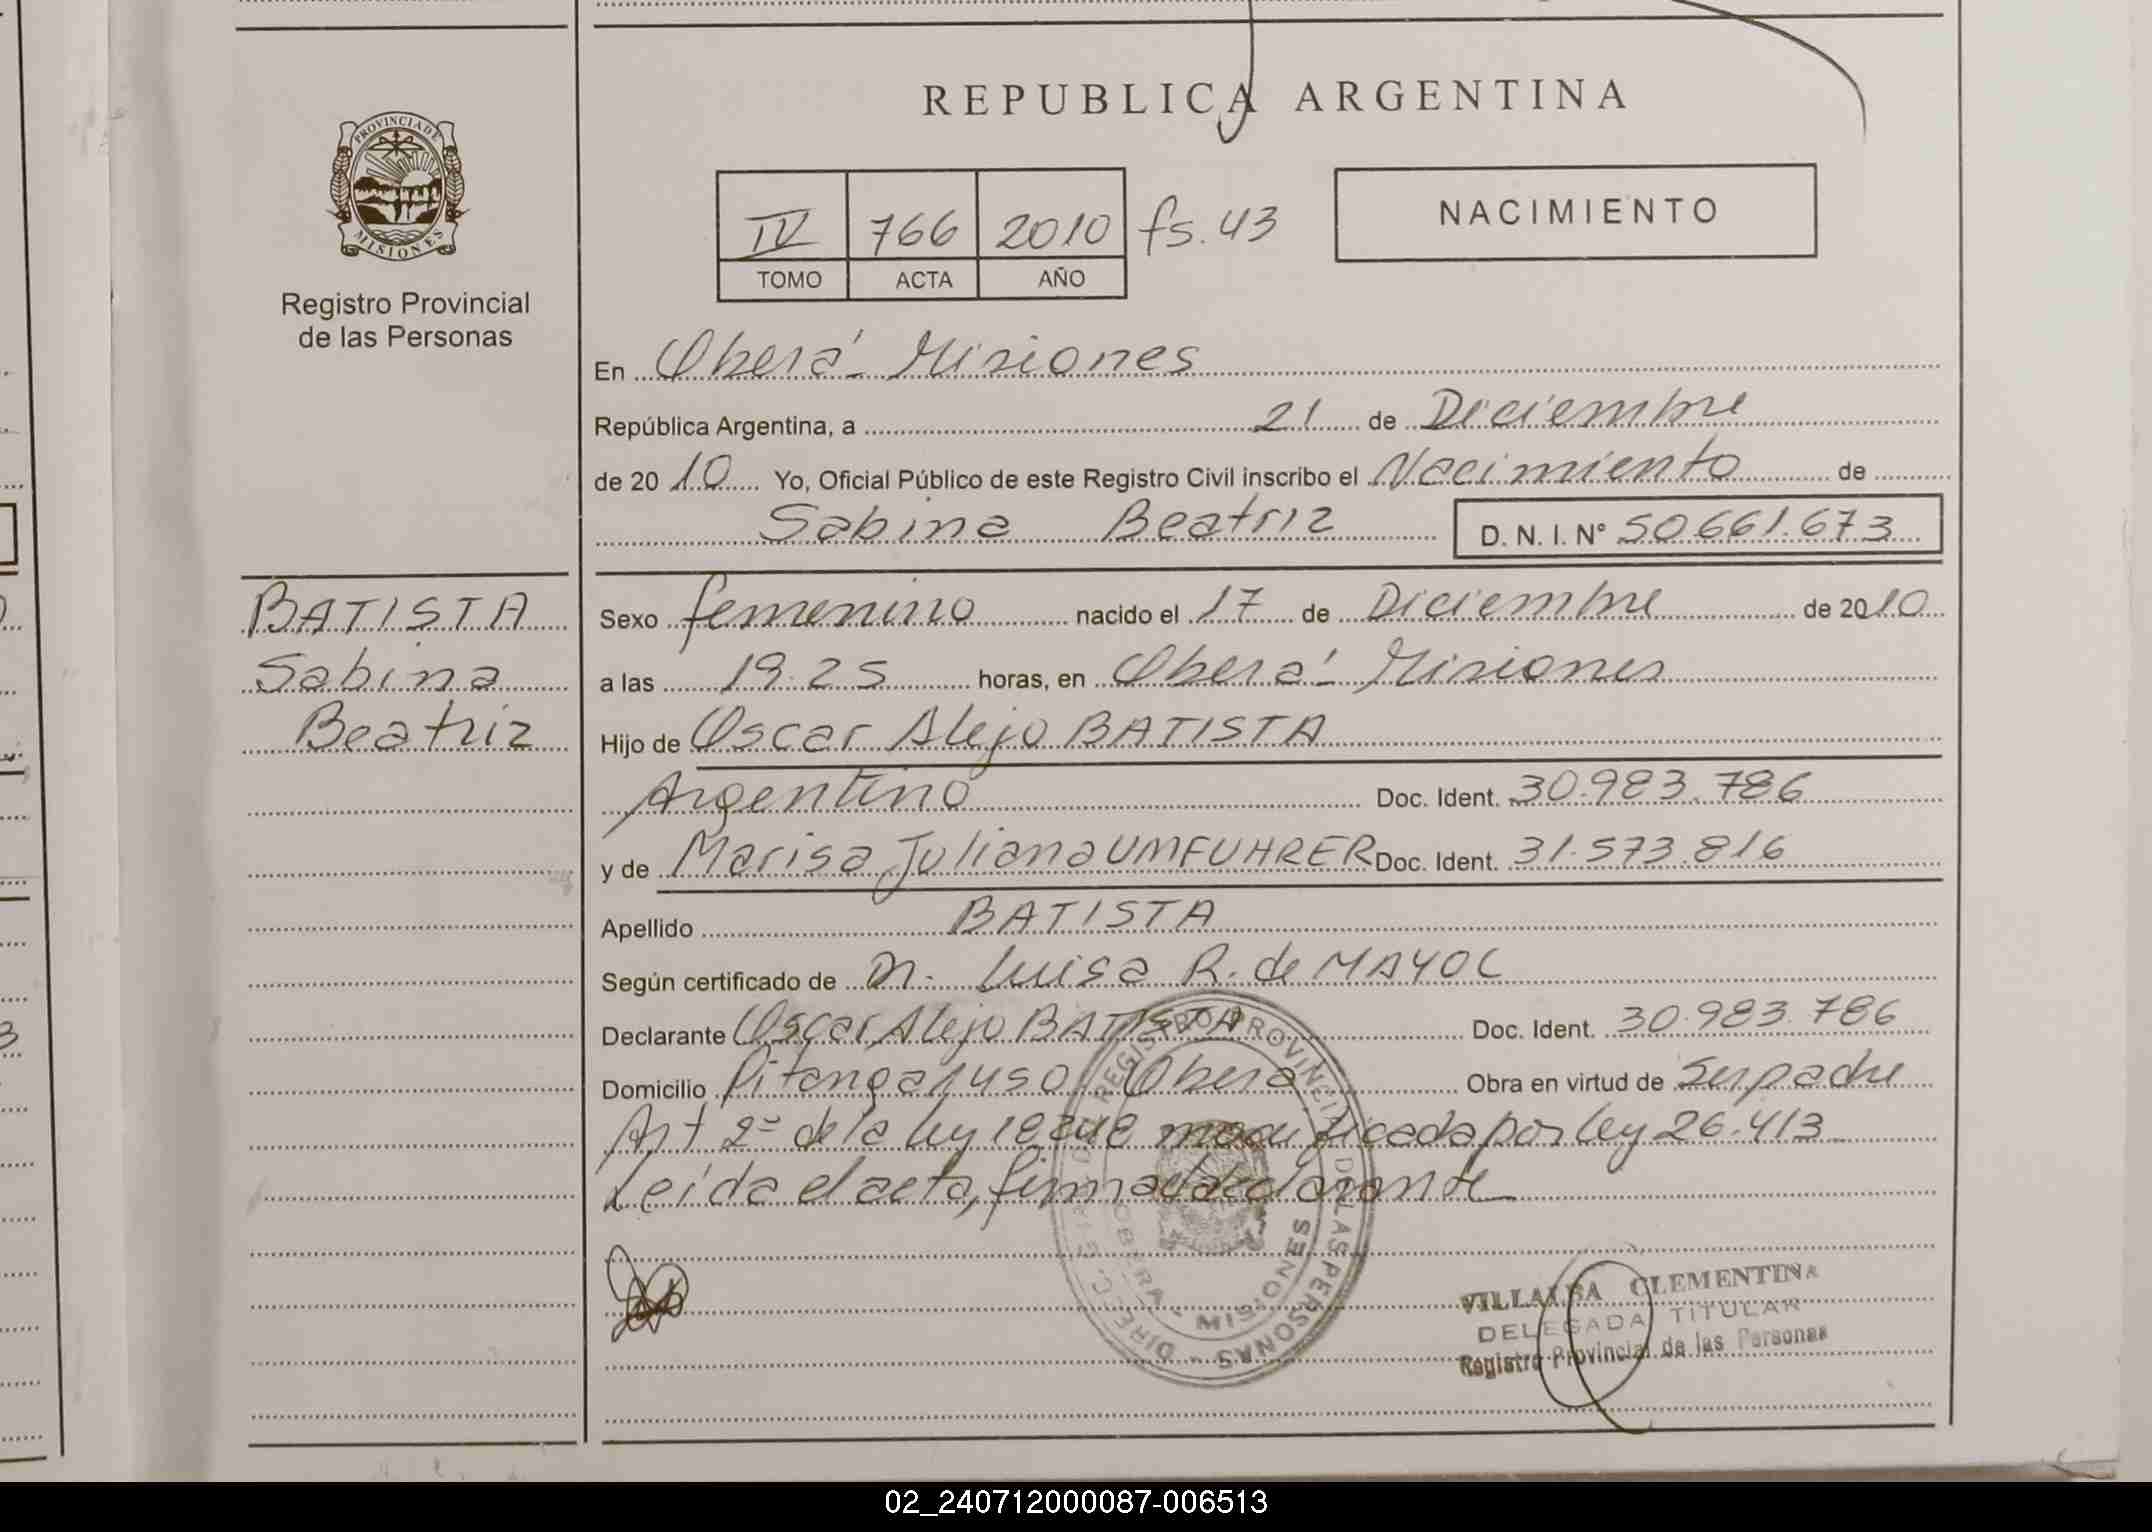 REPUBLICA ARGENTINA
PROVINCIA DE
MISIONES
Registro Provincial
de las Personas
IV 766 2010 fs. 43
TOMO ACTA AÑO
NACIMIENTO
En Oberá - Misiones
República Argentina, a 21 de Diciembre
de 20 10 Yo, Oficial Público de este Registro Civil inscribo el Nacimiento de
Sabina Beatriz D. N. I. N° 50.661.673
BATISTA
Sabina
Beatriz
Sexo femenino nacido el 17 de Diciembre de 2010
a las 19.25 horas, en Oberá - Misiones
Hijo de Oscar Alejo BATISTA
Argentino Doc. Ident. 30.983.786
y de Marisa Juliana UMFUHRER Doc. Ident. 31.573.816
Apellido BATISTA
Según certificado de Dr. Luisa R. de MAYOL
Declarante Oscar Alejo BATISTA Doc. Ident. 30.983.786
Domicilio Oberá Obra en virtud de Ser padre
Art 2º de la ley 18248 modificada por ley 26.413
Leída el acta, firma declarante
DIREC. GRAL. DEL REGISTRO PROVINCIAL DE LAS PERSONAS
OBERA - MISIONES
VILLALBA CLEMENTINA
DELEGADA TITULAR
Registro Provincial de las Personas
02_240712000087-006513